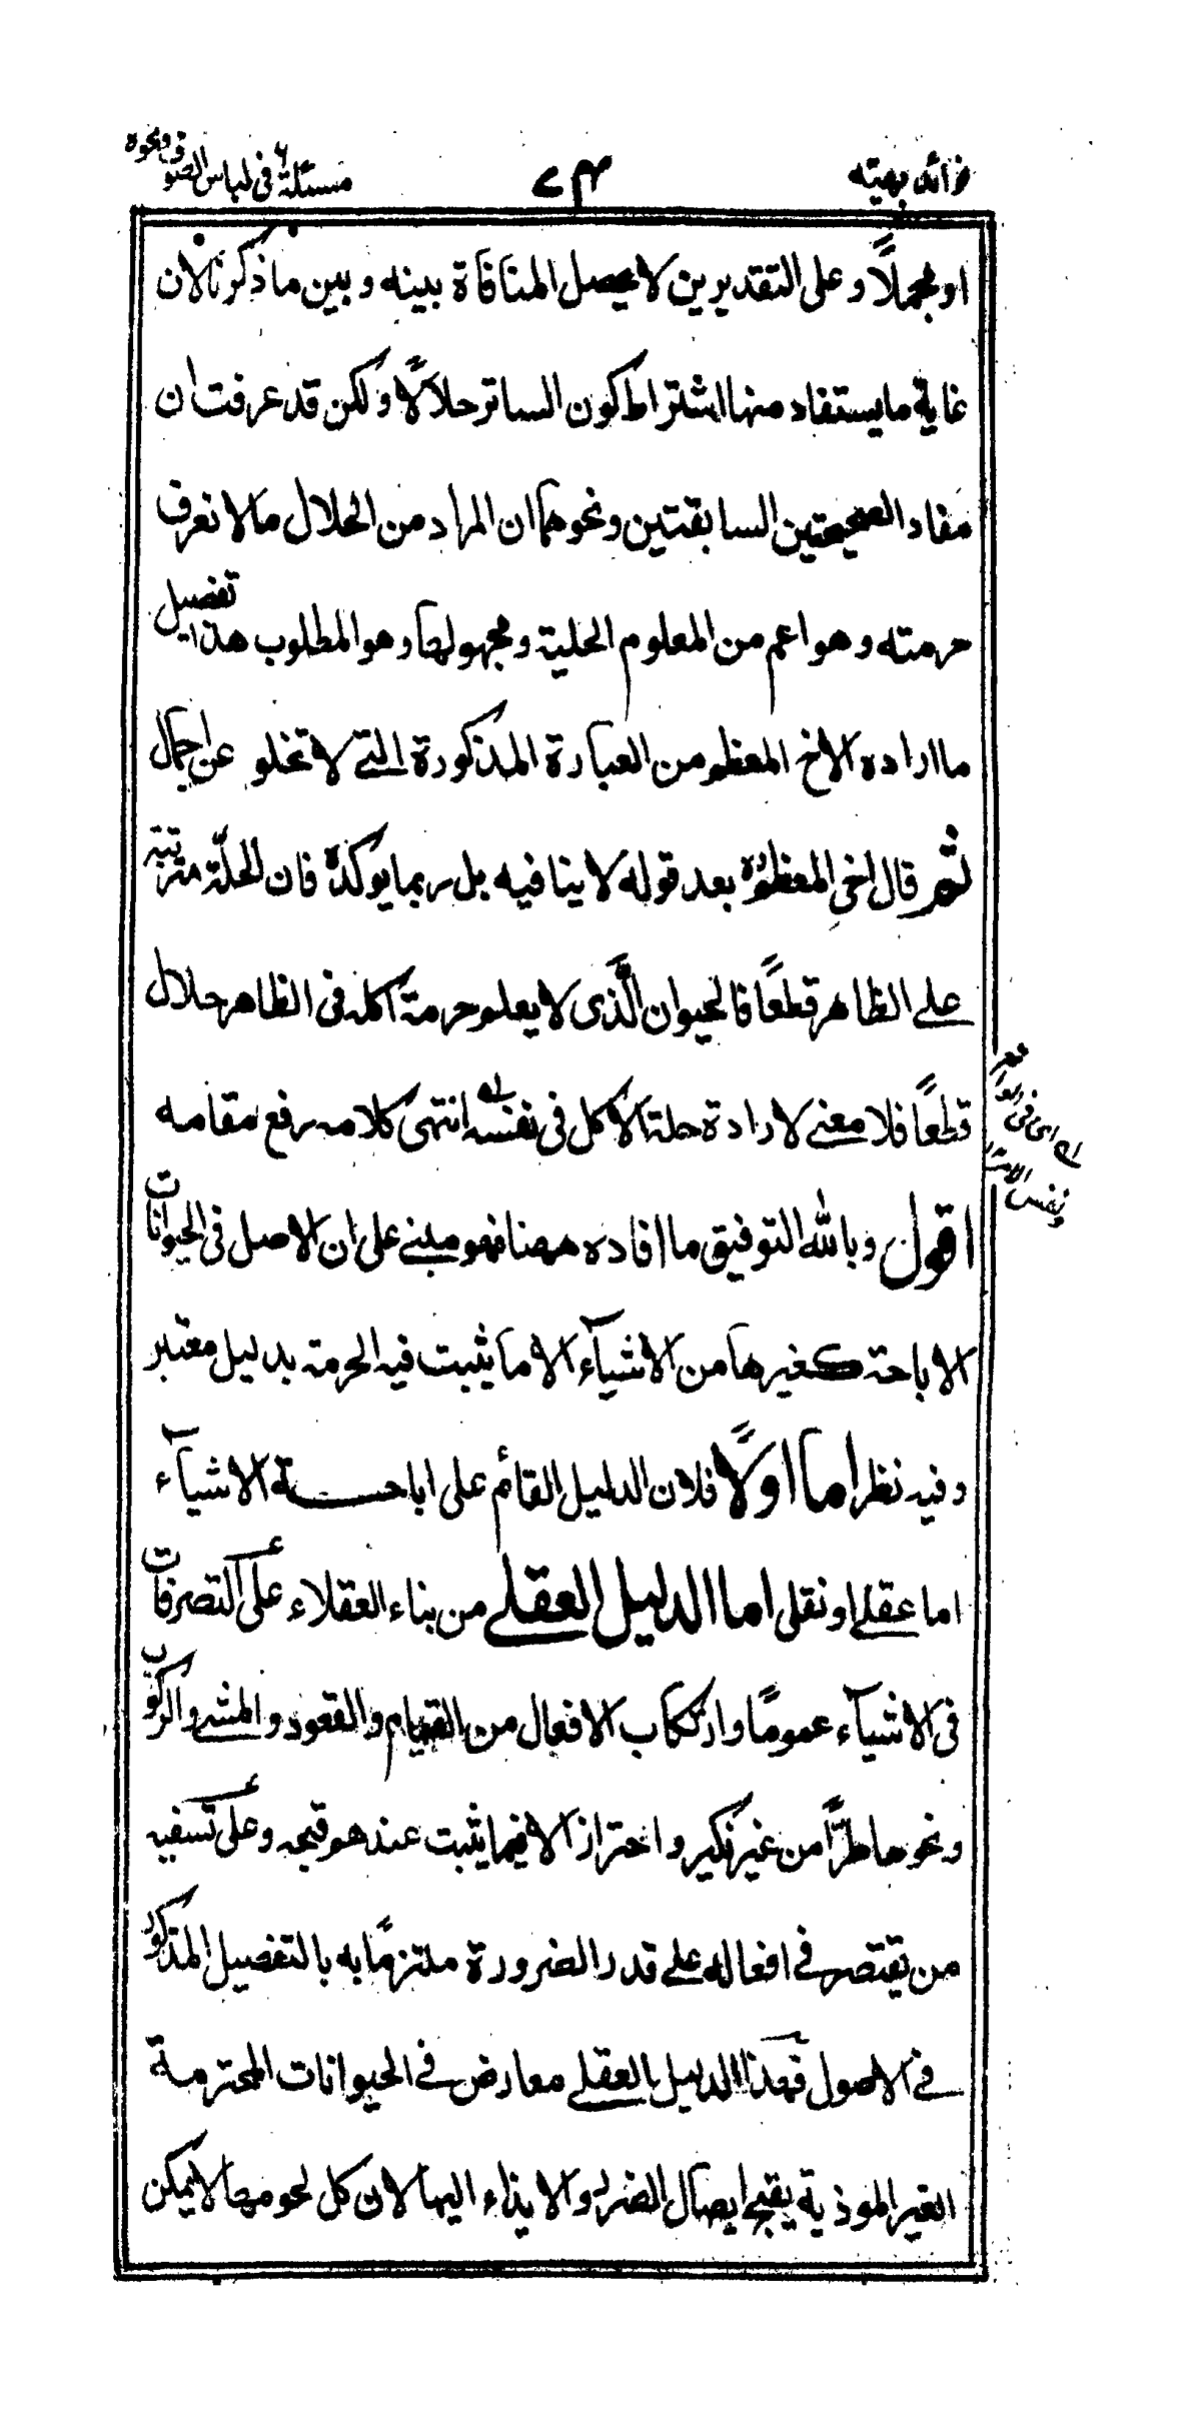 فرائد بهيته
٧٣
مسئلة ٦ في لباس الصوف ونحوه
او مجملاً وعلى التقديرين لا يحصل المنافاة بينه وبين ما ذكرنا لان
غاية ما يستفاد منها اشتراط كون الساتر حلالاً ولكن قد عرفت ان
مفاد الصحيحتين السابقتين ونحوهما ان المراد من الحلال ما لا نعرف
حرمته وهو اعم من المعلوم الحلية ومجهولها وهو المطلوب هذا تفصيل
ما اراده الاخ المعظم من العبارة المذكورة التي لا تخلو عن اجمال
ثم قال اخي المعظم بعد قوله لا ينافيه بل ربما يوكده فان الحلّة مترتبة
على الظاهر قطعاً فالحيوان الّذى لا يعلم حرمة اكله فى الظاهر حلال
قطعاً فلا معنى لارادة حلة الاكل فى نفسه انتهى كلامه رفع مقامه
له اى فى الواقع
ونفس الامر
اقول وبالله التوفيق ما افاده ههنا فهو مبنى على ان الاصل فى الحيوانات
الاباحة كغيرها من الاشيآء الا ما يثبت فيه الحرمة بدليل معتبر
وفيه نظر اما اولاً فلان الدليل القائم على اباحة الاشيآء
اما عقلى او نقلى اما الدليل العقلى من بناء العقلاء على التصرفات
فى الاشيآء عموماً وارتكاب الافعال من القيام والقعود والمشى والركوب
ونحوها طرّاً من غير نكير واحتراز الا فيما يثبت عندهم قبحه وعلى تسفيه
من يقتصر فى افعاله على قدر الضرورة ملتزماً به بالتفصيل المذكور
فى الاصول فهذا الدليل العقلى معارض فى الحيوانات المحترمة
الغير الموذية يقبح ايصال الضرر والايذاء اليها لان كل لحومها لا يمكن